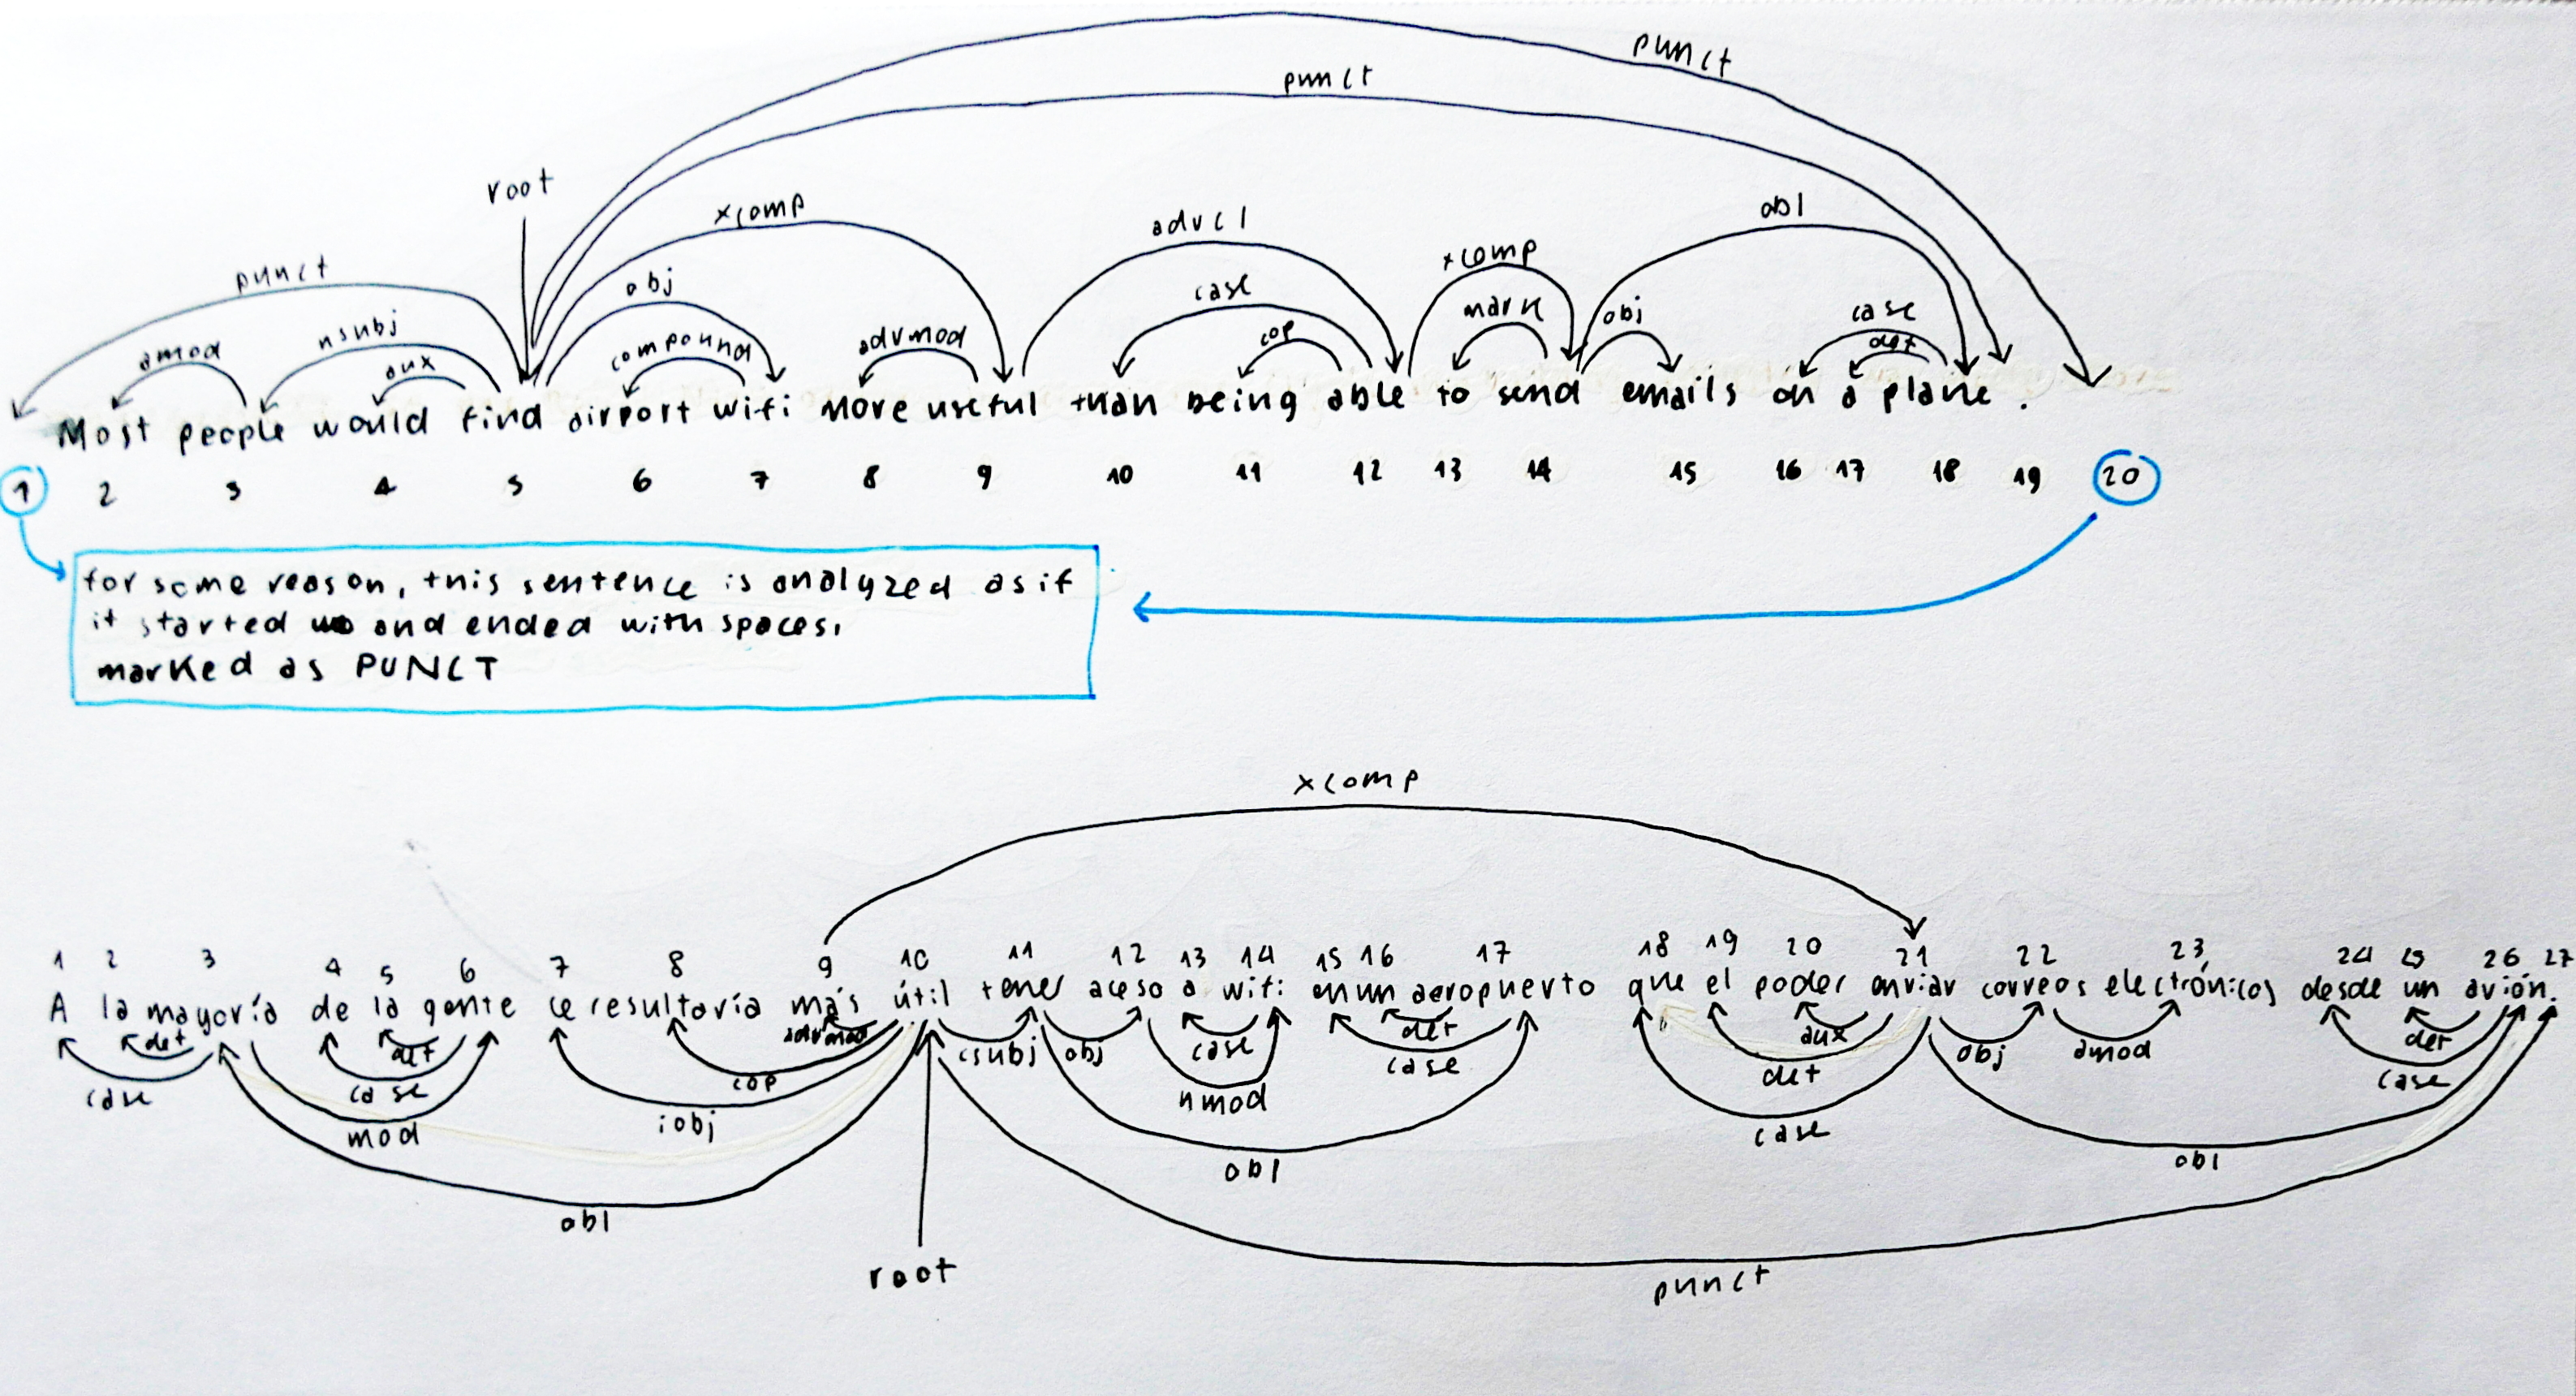 punct
punct
root
xcomp
advcl
obl
punct
nsubj
obj
case
xcomp
amod
aux
compound
advmod
cop
mark
obj
case
det
Most people would find airport wifi more useful than being able to send emails on a plane .
1 2 3 4 5 6 7 8 9 10 11 12 13 14 15 16 17 18 19 20
for some reason, this sentence is analyzed as if
it started and ended with spaces,
marked as PUNCT
xcomp
1 2 3 4 5 6 7 8 9 10 11 12 13 14 15 16 17 18 19 20 21 22 23 24 25 26 27
A la mayoría de la gente le resultaría más útil tener aceso a wifi en un aeropuerto que el poder enviar correos electrónicos desde un avión.
det det advmod csubj obj case det aux obj amod det
case case cop nmod case det case
mod iobj case
obl obl obl
root
punct